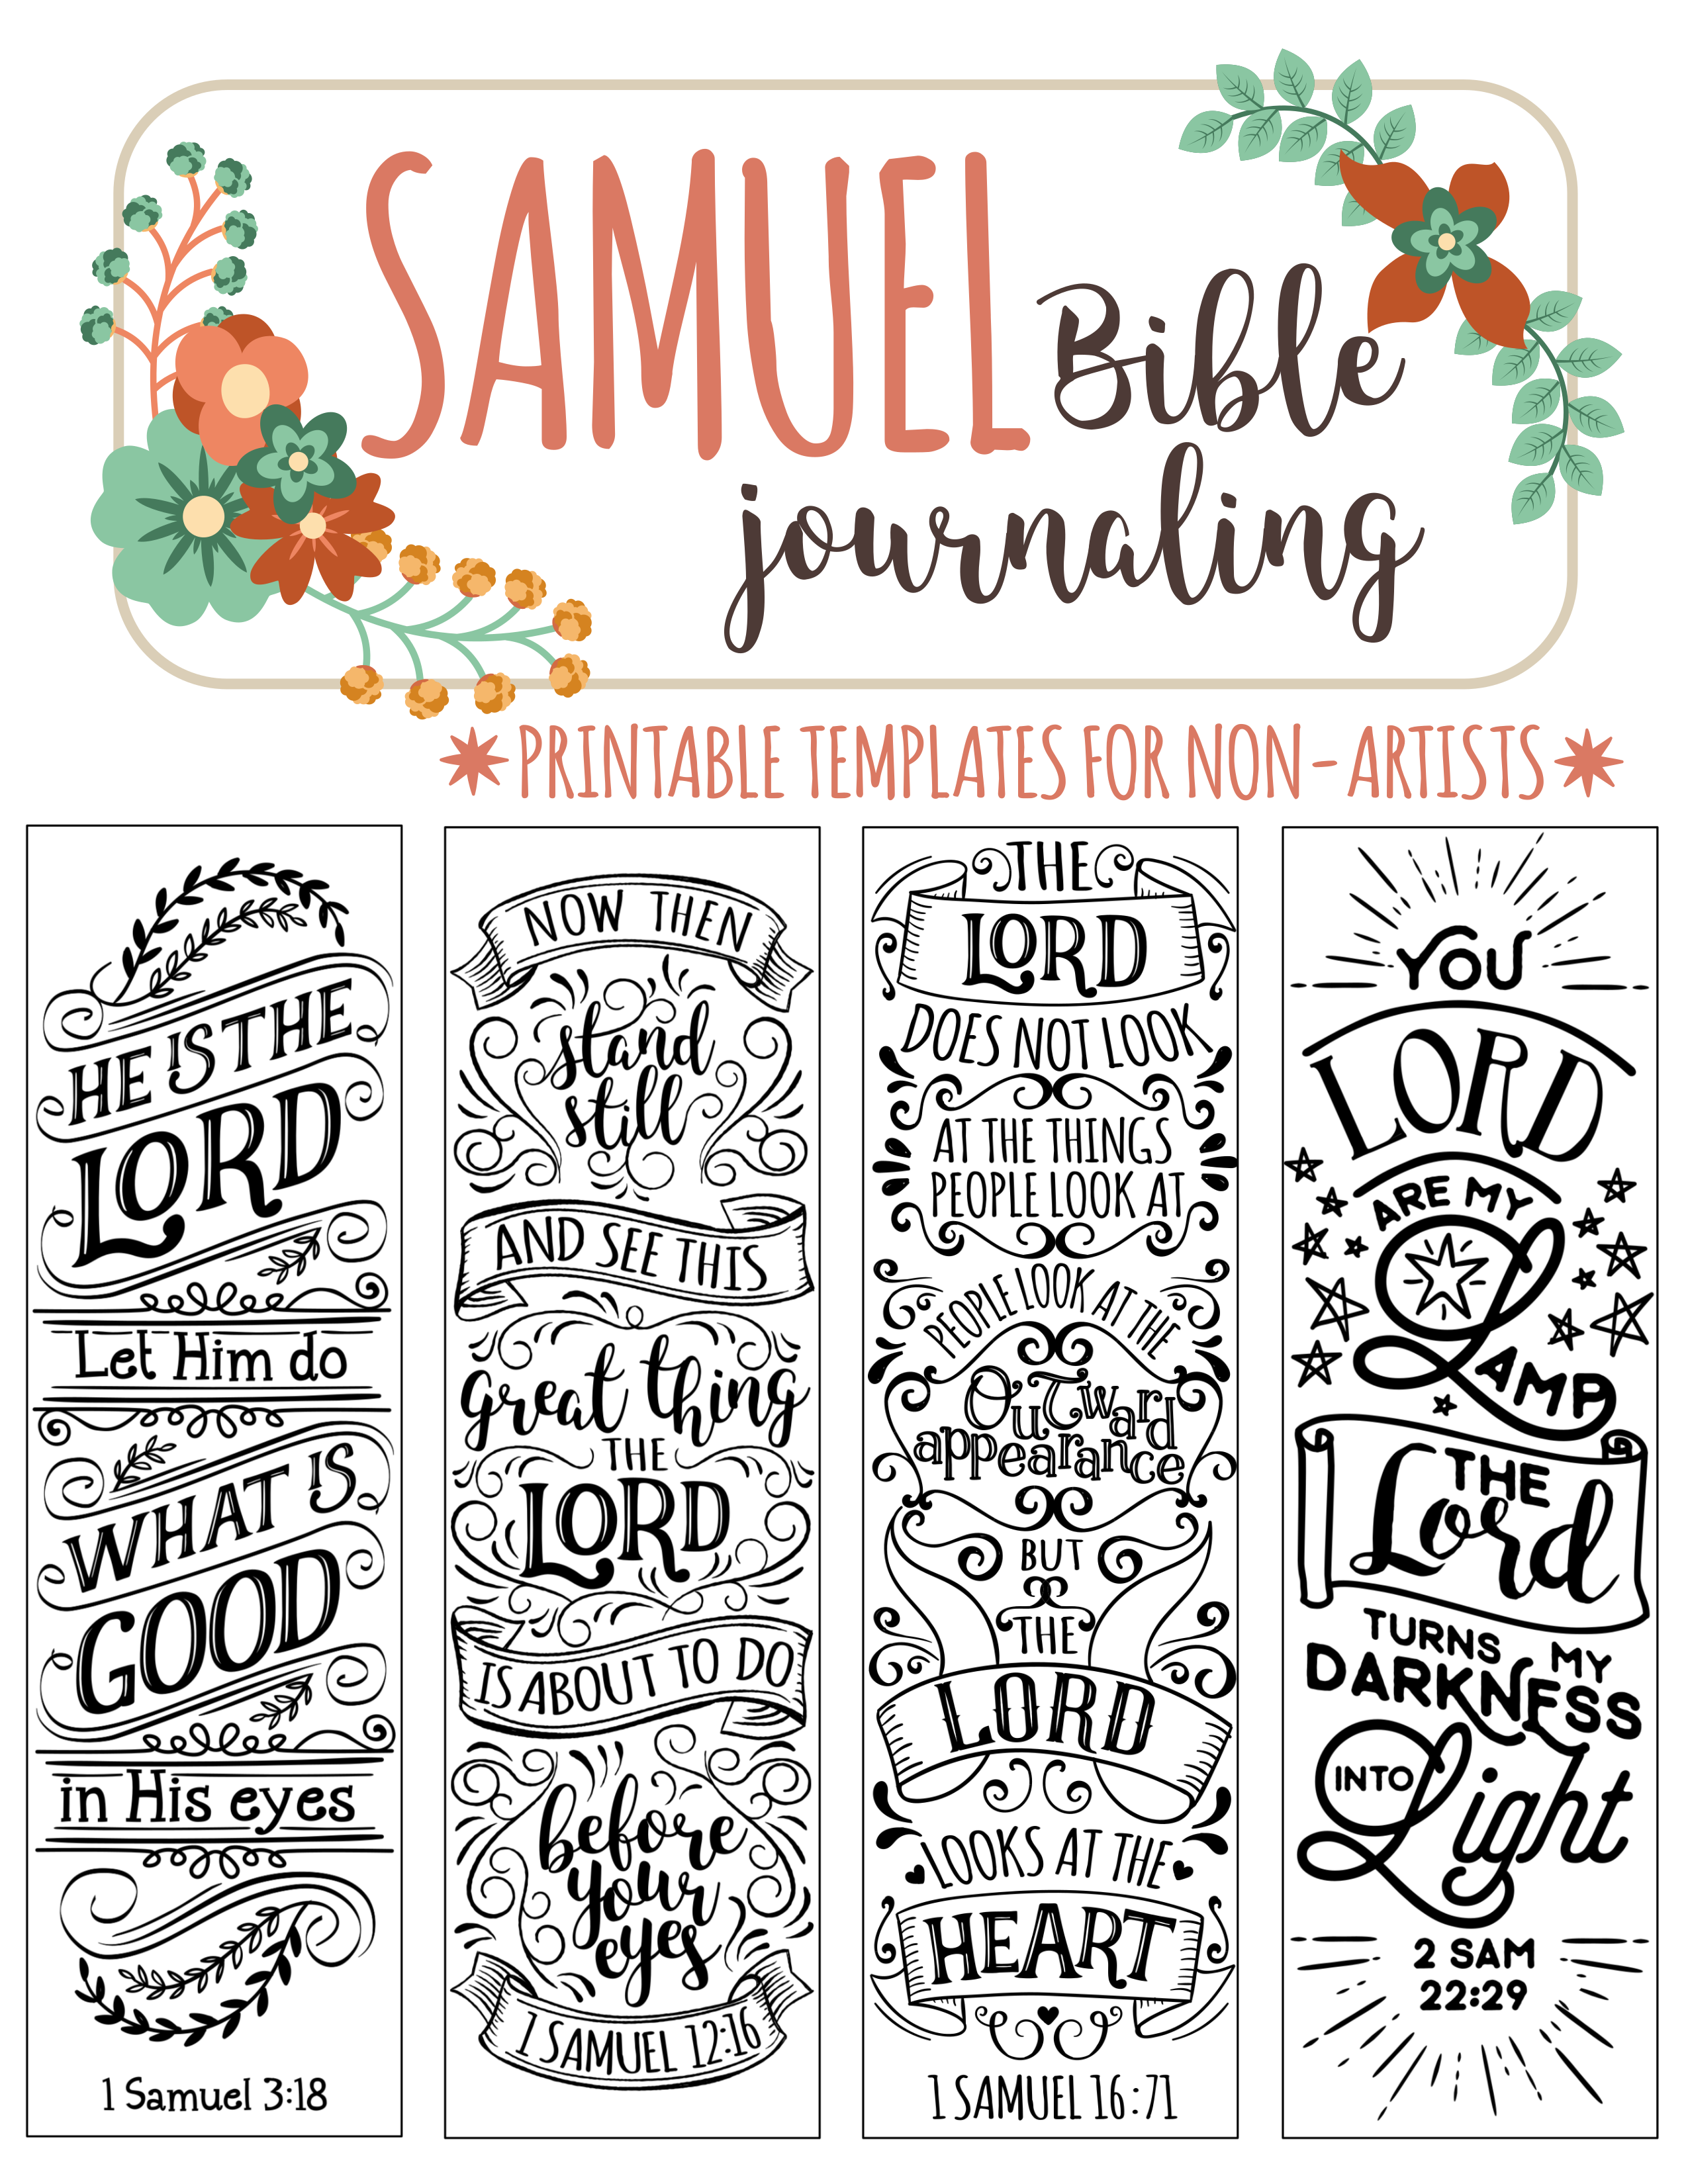 SAMUEL Bible
journaling
PRINTABLE TEMPLATES FOR NON-ARTISTS
HE IS THE
LORD
Let Him do
WHAT IS
GOOD
in His eyes
1 Samuel 3:18
NOW THEN
stand
still
AND SEE THIS
great thing
THE
LORD
IS ABOUT TO DO
before
your
eyes
1 SAMUEL 12:16
THE
LORD
DOES NOT LOOK
AT THE THINGS
PEOPLE LOOK AT
PEOPLE LOOK AT THE
OuTward
appearance
BUT
THE
LORD
LOOKS AT THE
HEART
1 SAMUEL 16:71
YOU
LORD
ARE MY
LAMP
THE
Lord
TURNS MY
DARKNESS
INTO Light
2 SAM
22:29